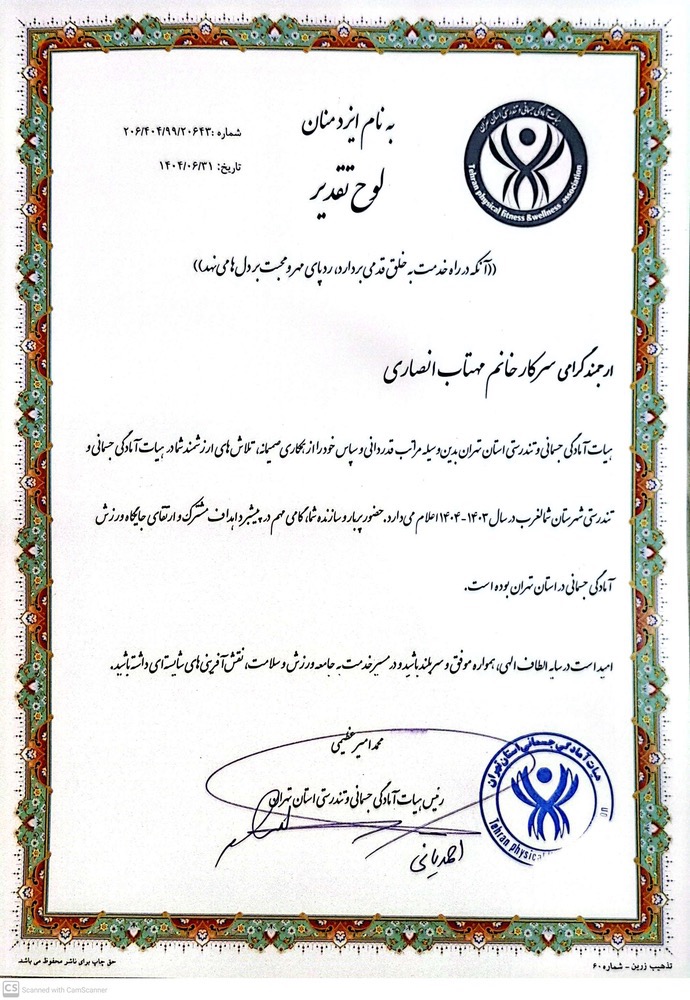 به نام ایزد منان
لوح تقدیر
شماره :۲۰۶/۴۰۴/۹۹/۲۰۶۴۳
تاریخ: ۱۴۰۴/۰۶/۳۱
هیات آمادگی جسمانی و تندرستی استان تهران
Tehran physical fitness & wellness association
((آنکه در راه خدمت به خلق قدمی بردارد، ردپای مهر و محبت بر دل ها می نهد))
ارجمند گرامی سرکار خانم مهتاب انصاری
هیات آمادگی جسمانی و تندرستی استان تهران بدین وسیله مراتب قدردانی و سپاس خود را از همکاری صمیمانه، تلاش های ارزشمند شما در هیات آمادگی جسمانی و
تندرستی شهرستان شمالغرب در سال ۱۴۰۳-۱۴۰۴ اعلام می دارد. حضور پربار و سازنده شما، گامی مهم در پیشبرد اهداف مشترک و ارتقای جایگاه ورزش
آمادگی جسمانی در استان تهران بوده است.
امید است در سایه الطاف الهی، همواره موفق و سربلند باشید و در مسیر خدمت به جامعه ورزش و سلامت، نقش آفرینی های شایسته ای داشته باشید.
محمد امیر عظیمی
رئیس هیات آمادگی جسمانی و تندرستی استان تهران
هیات آمادگی جسمانی استان تهران
Tehran physical
حق چاپ برای ناشر محفوظ می باشد.
تذهیب زرین - شماره ۶۰
CS Scanned with CamScanner